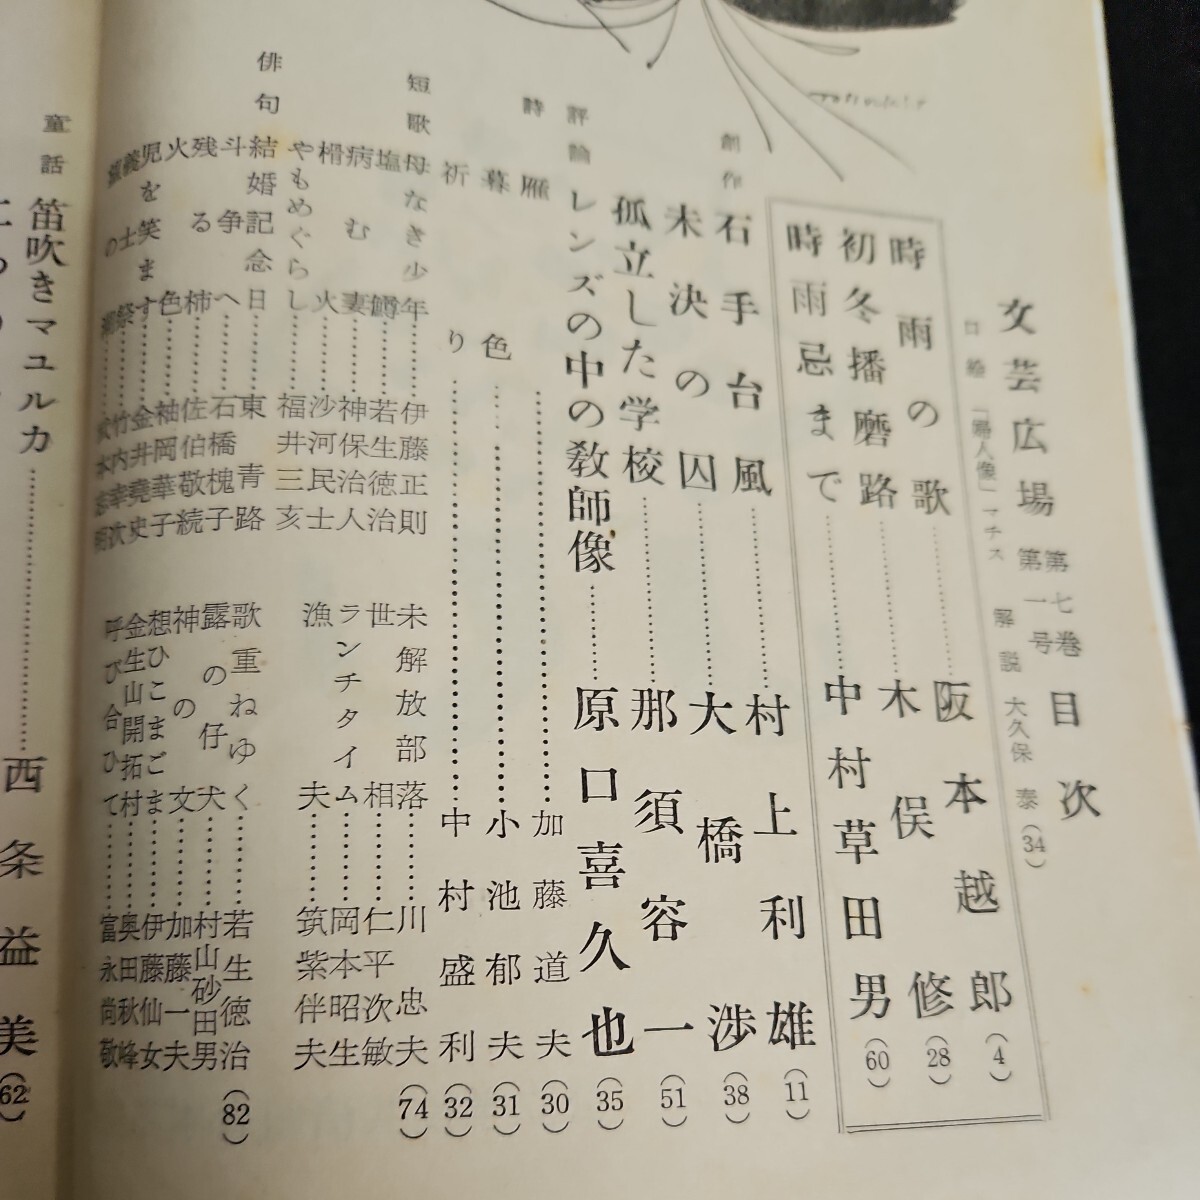 文芸広場 第七巻 第一号 目次
口絵「婦人像」マチス 解説 大久保 泰(34)
時雨の歌……阪本越郎(4)
初冬播磨路……木俣 修(28)
時雨忌まで……中村草田男(60)
創作
石手台風……村上利雄(11)
未決の囚……大橋 渉(38)
孤立した学校……那須容一(51)
評論
レンズの中の教師像……原口喜久也(35)
詩
雁……加藤道夫(30)
暮色……小池郁夫(31)
祈り……中村盛利(32)
短歌
母なき少年……伊藤正則
塩鱒……若生徳治
病む妻……神保治人
榾火……沙河民士
やもめぐらし……福井三亥
未解放部落……川忠夫
世相……仁平次敏
ランチタイム……岡本昭生
漁夫……筑紫伴夫
(74)
俳句
結婚記念日……東青路
斗争へ……石橋槐子
残る柿……佐伯敬続
火色……袖岡華子
児を笑ます……金井堯史
義士祭……竹内幸次
歌重ねゆく……若生徳治
露の仔犬……村山砂田男
神の文……加藤一夫
想ひこまごま……伊藤仙女
金生山開拓村……奥田秋峰
呼び合ひて……富永尚敬
(82)
童話
笛吹きマユルカ……西条益美(62)